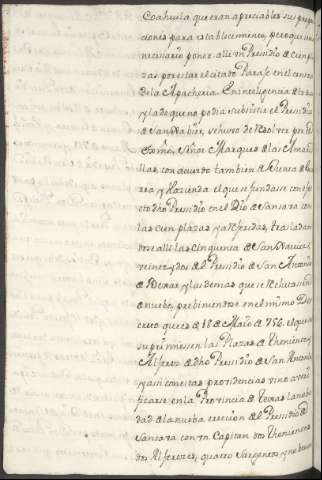 Coahuila que eran apreciables sus propor
ciones para establecimiento, pero que era
necesario poner alli un Presidio de cien pla
zas por estar el citado Parage en el centro
de la Apacheria. En inteligencia de
y la de que no podia subsistir el Presidio
de San Xavier, se huvo de resolver por el
Excmo. Señor Marques de las Amari
llas, con acuerdo tambien de Junta de Guer
ra y Hazienda el que se fundase con efec
to dho Presidio en el Rio de San Saba con
las cien plazas ya referidas, trasladan
dose alli las cinquenta de San Xavier,
veinte y dos del Presidio de San Antonio
de Bexar, y las demas que se reclutasen
de nuebo, prebiniendose en el mismo De
creto que es de 18 de Maio de 756. el que se
suprimiesen las Plazas de Theniente y
Alferez de dho Presidio de San Antonio
y asi con estas providencias vino a veri
ficarse en la Provincia de Texas la nobe
dad de la nueba ereccion del Presidio de
San Saba con un Capitan dos Thenientes
dos Alferezes, quatro Sargentos, y no